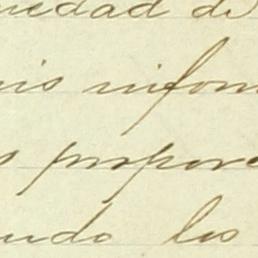 iedad de
is infor
s propor
ndo los